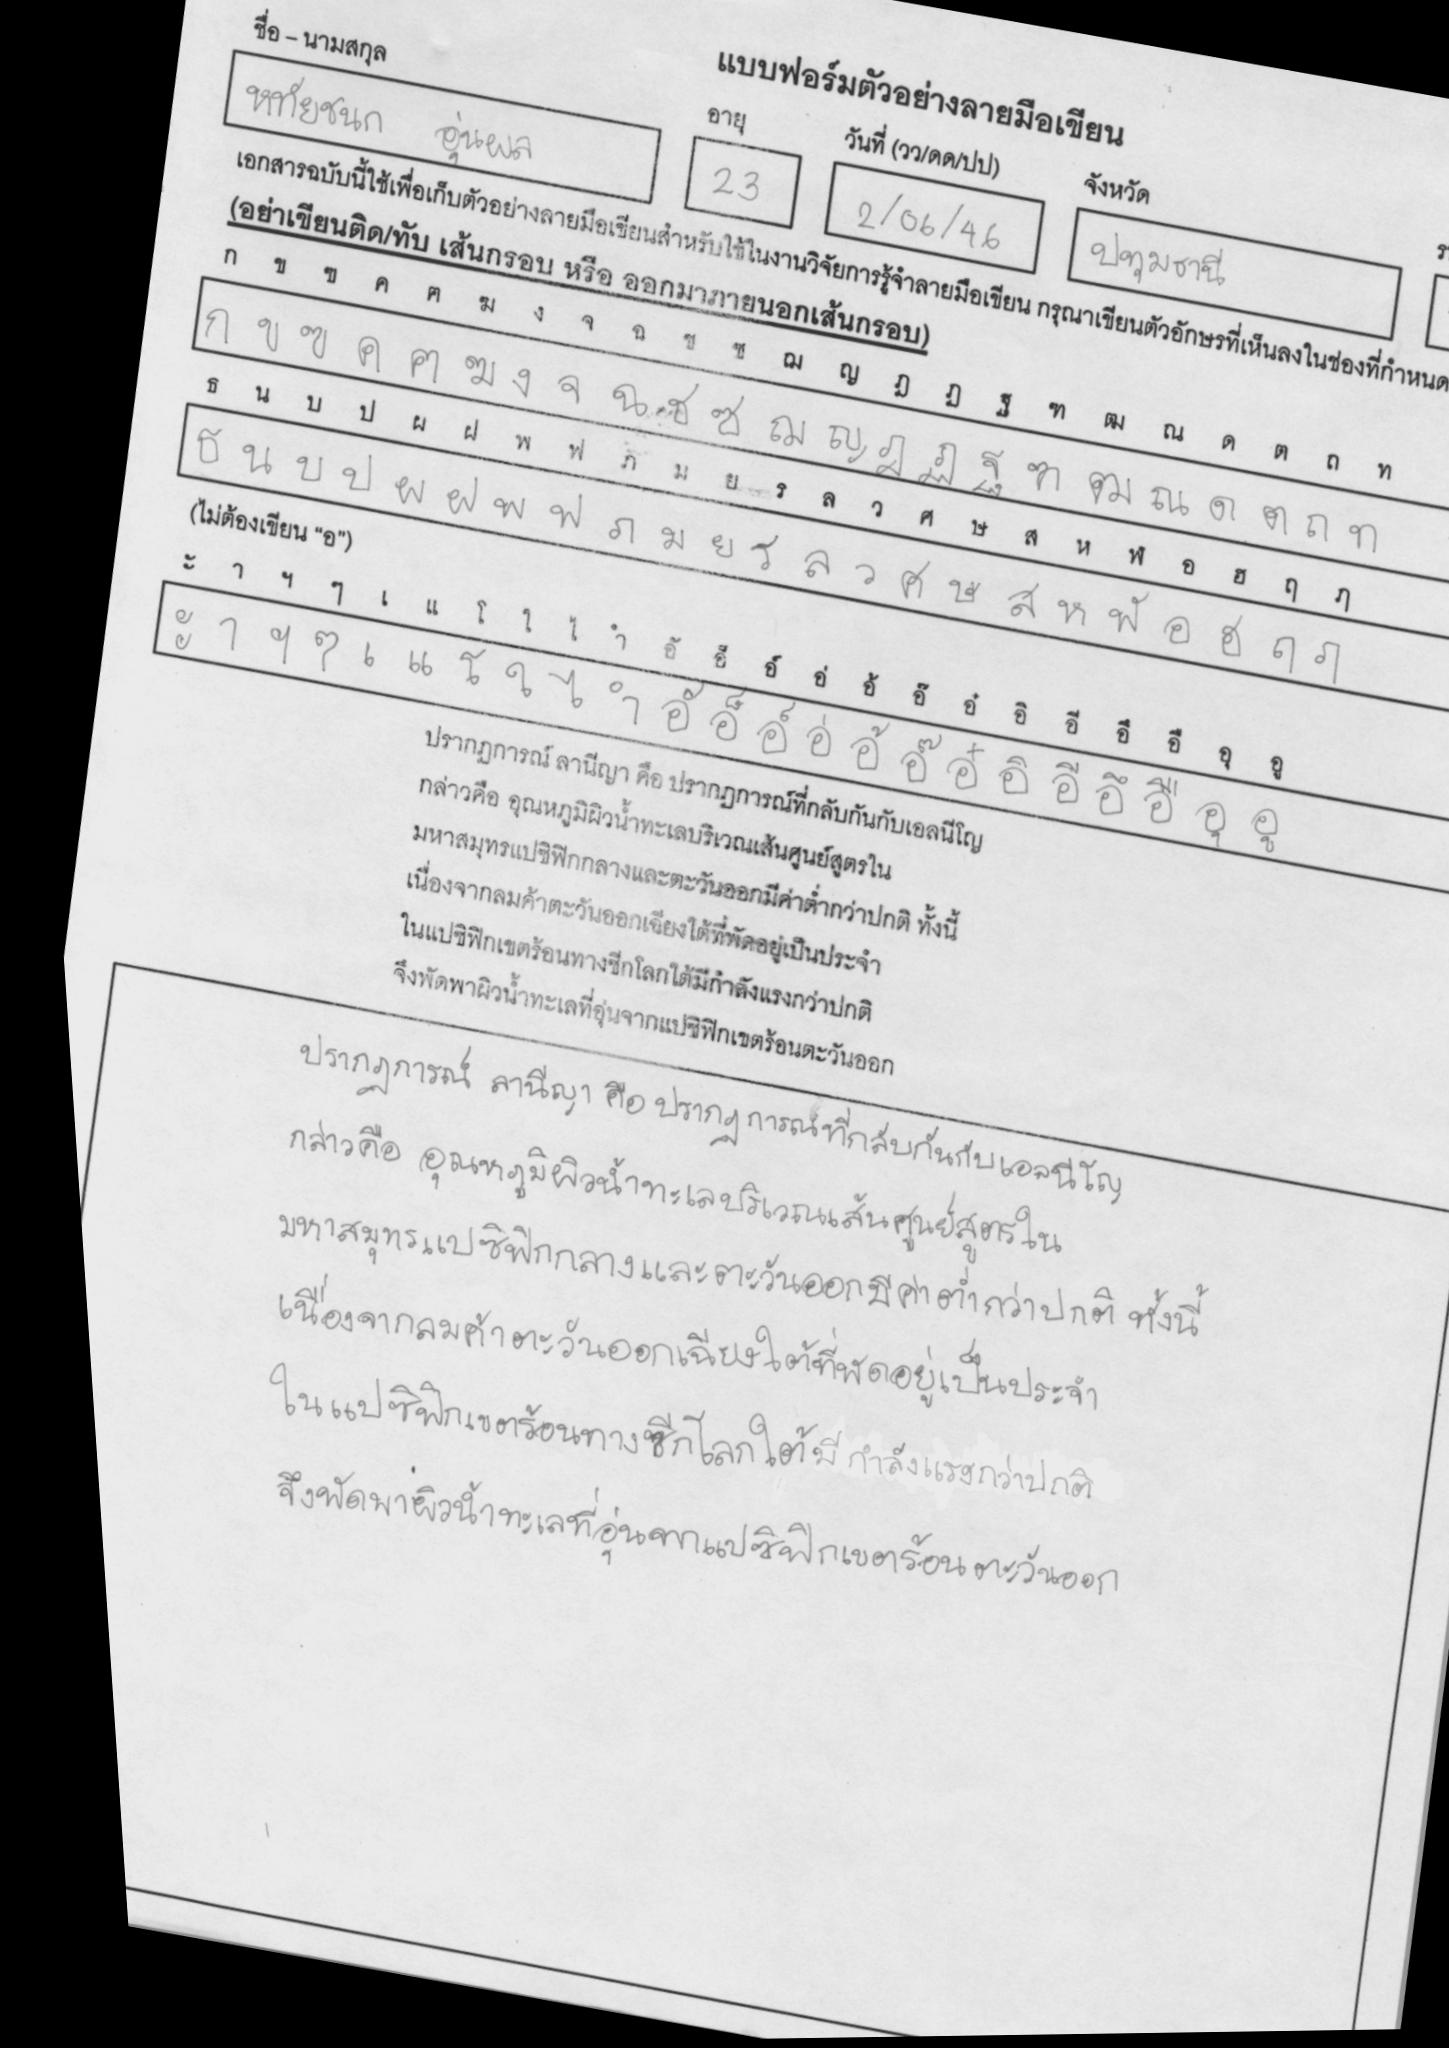 แบบฟอร์มตัวอย่างลายมือเขียน
ชื่อ – นามสกุล อายุ วันที่ (วว/ดด/ปป) จังหวัด
หทัยชนก อุ่นผล 23 2/06/46 ปทุมธานี
เอกสารฉบับนี้ใช้เพื่อเก็บตัวอย่างลายมือเขียนสำหรับใช้ในงานวิจัยการรู้จำลายมือเขียน กรุณาเขียนตัวอักษรที่เห็นลงในช่องที่กำหนด
(อย่าเขียนติด/ทับ เส้นกรอบ หรือ ออกมาภายนอกเส้นกรอบ)
ก ข ฃ ค ฅ ฆ ง จ ฉ ช ซ ฌ ญ ฎ ฏ ฐ ฑ ฒ ณ ด ต ถ ท
ก ข ฃ ค ฅ ฆ ง จ ฉ ช ซ ฌ ญ ฎ ฏ ฐ ฑ ฒ ณ ด ต ถ ท
ธ น บ ป ผ ฝ พ ฟ ภ ม ย ร ล ว ศ ษ ส ห ฬ อ ฮ ฤ ฦ
ธ น บ ป ผ ฝ พ ฟ ภ ม ย ร ล ว ศ ษ ส ห ฬ อ ฮ ฤ ฦ
(ไม่ต้องเขียน “อ”)
ะ า ฯ ๆ เ แ โ ใ ไ ำ อั อ็ อ์ อ่ อ้ อ๊ อ๋ อิ อี อึ อื อุ อู
ะ า ฯ ๆ เ แ โ ใ ไ ำ อั อ็ อ์ อ่ อ้ อ๊ อ๋ อิ อี อึ อื อุ อู
ปรากฏการณ์ ลานีญา คือ ปรากฏการณ์ที่กลับกันกับเอลนีโญ
กล่าวคือ อุณหภูมิผิวน้ำทะเลบริเวณเส้นศูนย์สูตรใน
มหาสมุทรแปซิฟิกกลางและตะวันออกมีค่าต่ำกว่าปกติ ทั้งนี้
เนื่องจากลมค้าตะวันออกเฉียงใต้ที่พัดอยู่เป็นประจำ
ในแปซิฟิกเขตร้อนทางซีกโลกใต้มีกำลังแรงกว่าปกติ
จึงพัดพาผิวน้ำทะเลที่อุ่นจากแปซิฟิกเขตร้อนตะวันออก
ปรากฏการณ์ ลานีญา คือ ปรากฏการณ์ที่กลับกันกับเอลนีโญ
กล่าวคือ อุณหภูมิผิวน้ำทะเลบริเวณเส้นศูนย์สูตรใน
มหาสมุทรแปซิฟิกกลางและตะวันออกมีค่าต่ำกว่าปกติ ทั้งนี้
เนื่องจากลมค้าตะวันออกเฉียงใต้ที่พัดอยู่เป็นประจำ
ในแปซิฟิกเขตร้อนทางซีกโลกใต้มีกำลังแรงกว่าปกติ
จึงพัดพาผิวน้ำทะเลที่อุ่นจากแปซิฟิกเขตร้อนตะวันออก